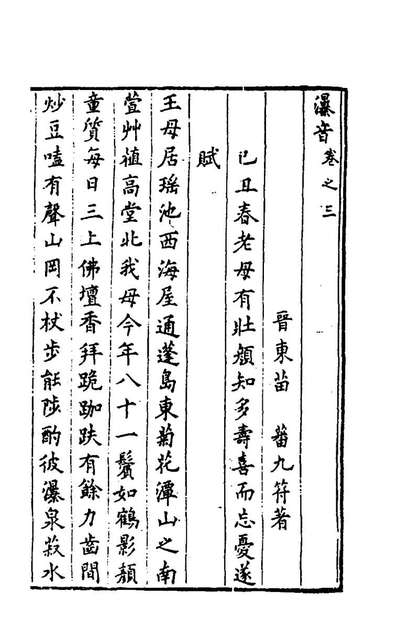 瀑音卷之三
晉東苗蕃九符著
己丑春老母有壯顏知多壽喜而忘憂遂
賦
王母居瑤池西海屋通蓬島東菊花潭山之南
萱艸植高堂北我母今年八十一鬢如鶴影顏
童質每日三上佛壇香拜跪跏趺有餘力齒間
炒豆嗑有聲山岡不杖步能陟酌彼瀑泉菽水